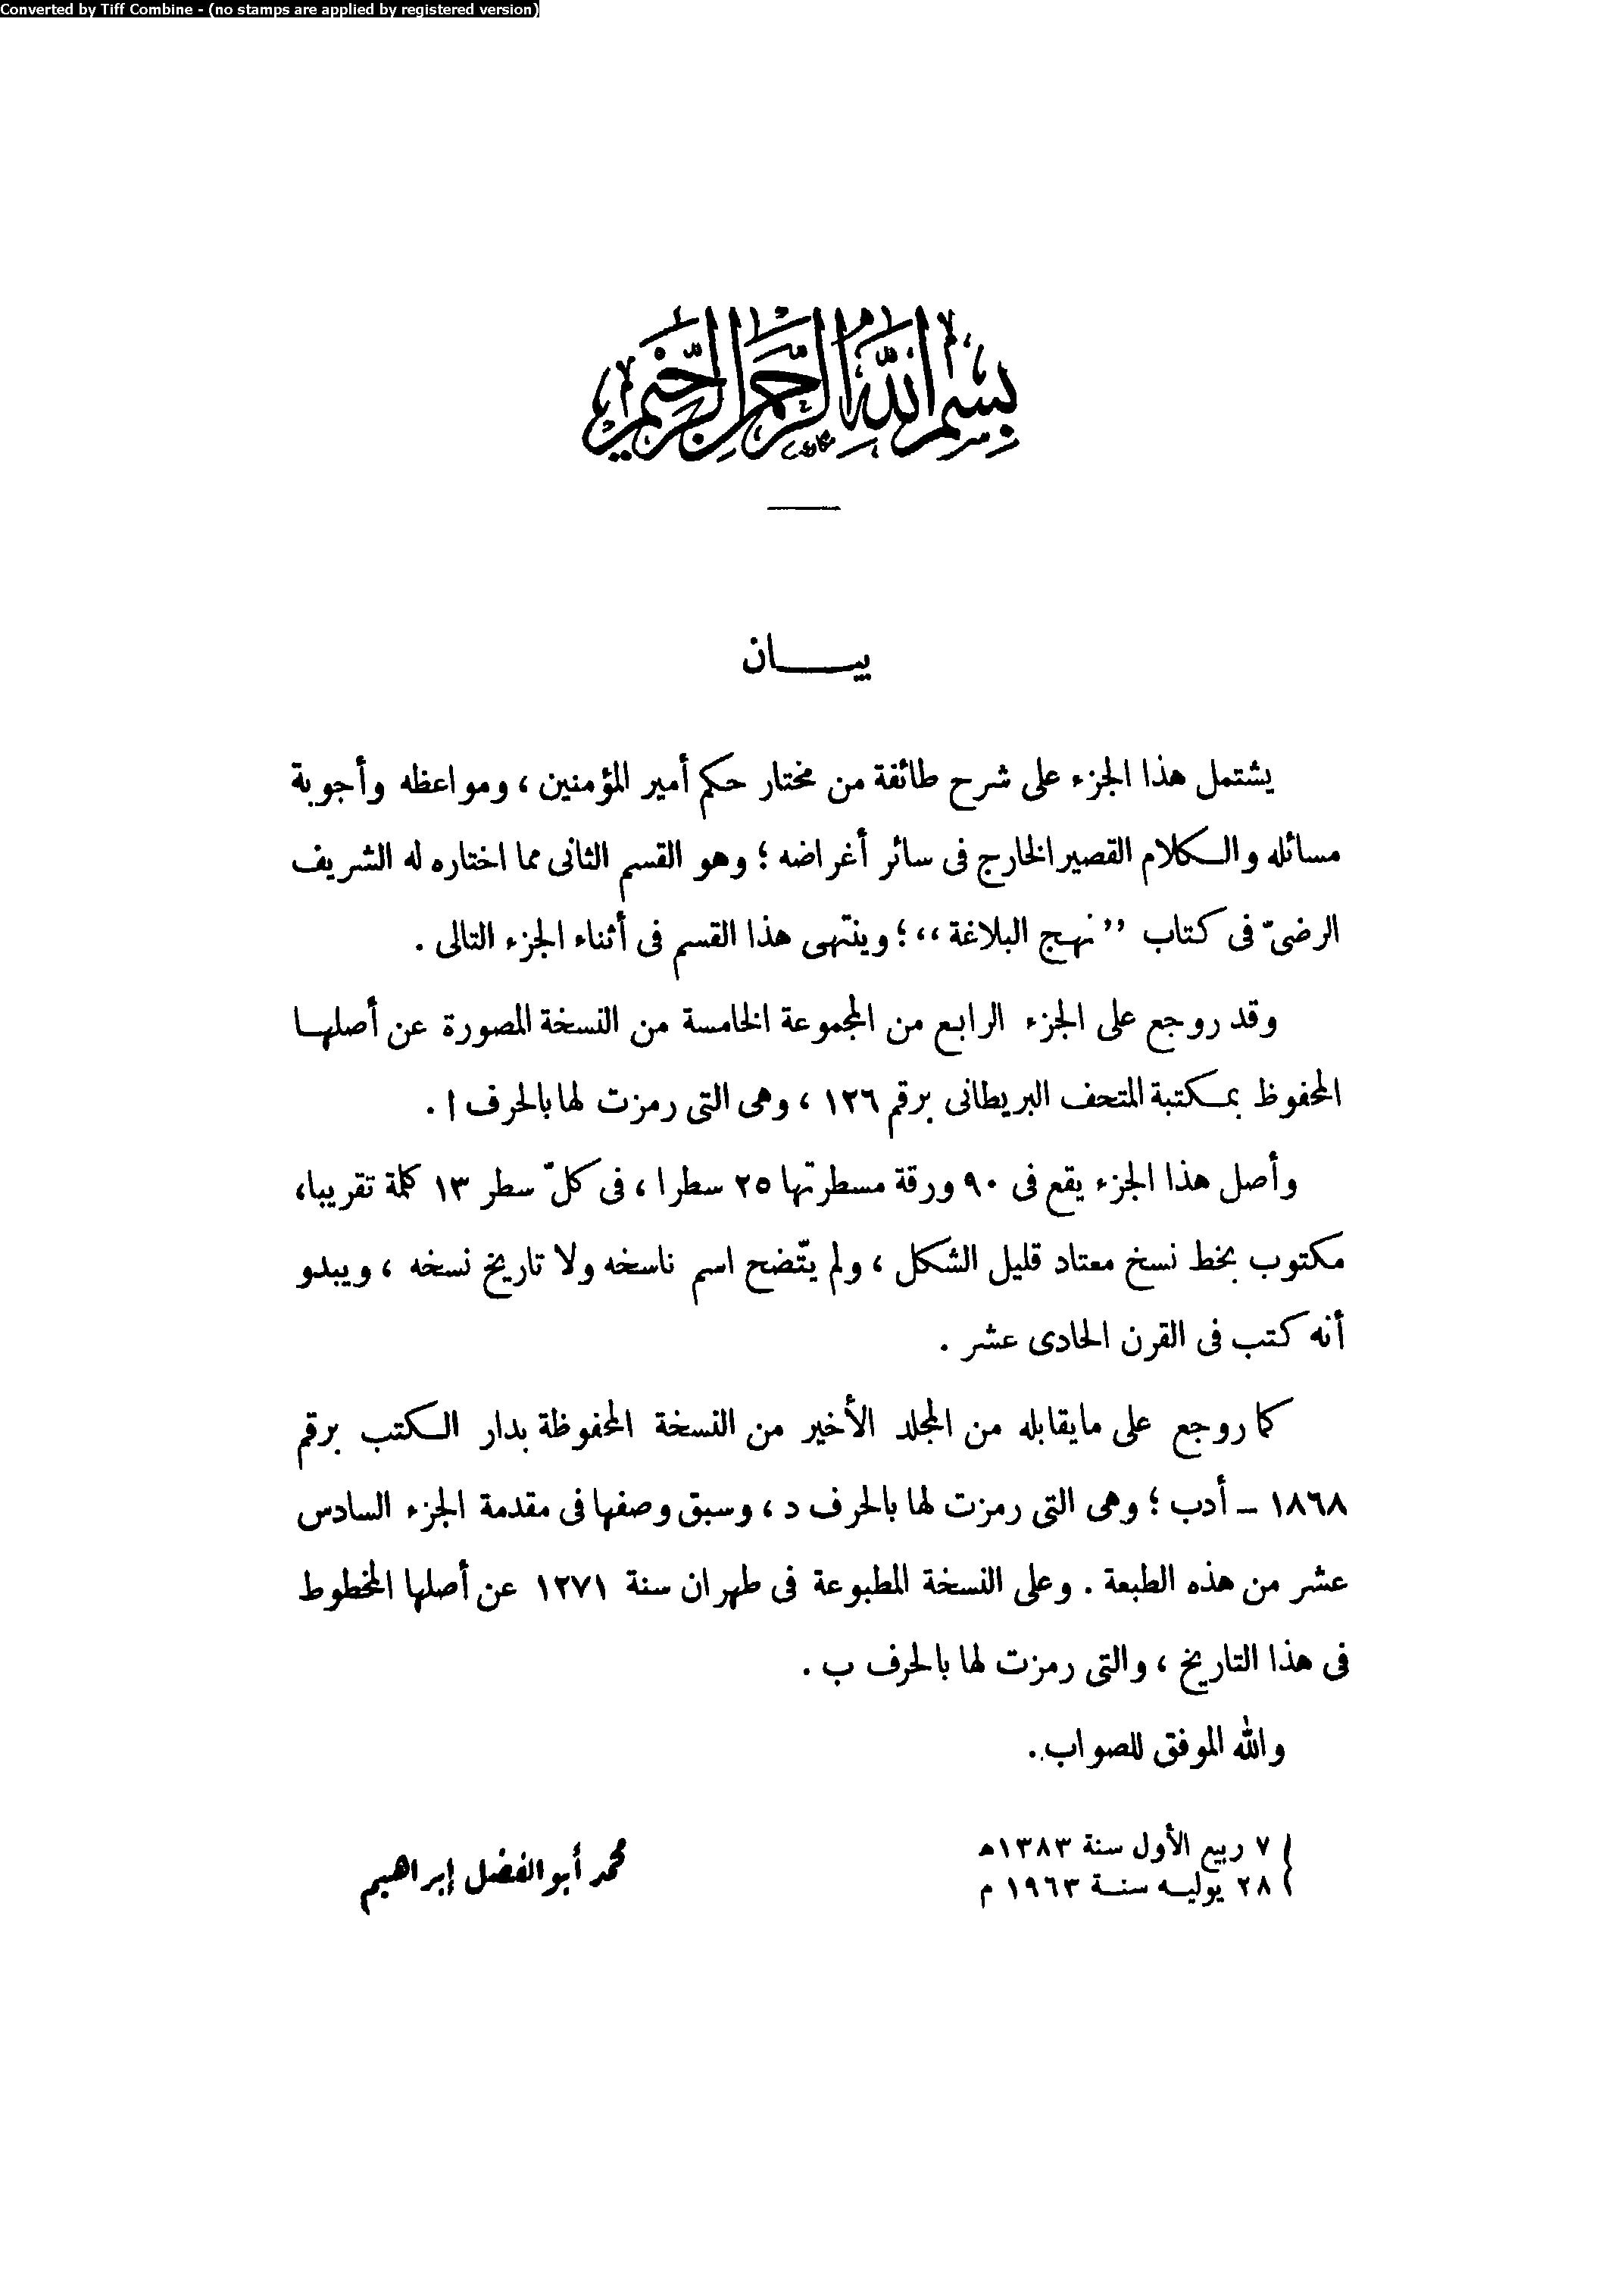 Converted by Tiff Combine - (no stamps are applied by registered version)
بسم الله الرحمن الرحيم
بيـــــان
يشتمل هذا الجزء على شرح طائفة من مختار حكم أمير المؤمنين ، ومواعظه وأجوبة
مسائله والكلام القصير الخارج فى سائر أغراضه ؛ وهو القسم الثانى مما اختاره له الشريف
الرضىّ فى كتاب ’’ نهج البلاغة ،، ؛ وينتهى هذا القسم فى أثناء الجزء التالى .
وقد روجع على الجزء الرابع من المجموعة الخامسة من النسخة المصورة عن أصلها
المحفوظ بمكتبة المتحف البريطانى برقم ١٢٦ ، وهى التى رمزت لها بالحرف ا .
وأصل هذا الجزء يقع فى ٩٠ ورقة مسطرتها ٢٥ سطرا ، فى كلّ سطر ١٣ كلمة تقريبا،
مكتوب بخط نسخ معتاد قليل الشكل ، ولم يتّضح اسم ناسخه ولا تاريخ نسخه ، ويبدو
أنه كتب فى القرن الحادى عشر .
كما روجع على مايقابله من المجلد الأخير من النسخة المحفوظة بدار الكتب برقم
١٨٦٨ – أدب ؛ وهى التى رمزت لها بالحرف د ، وسبق وصفها فى مقدمة الجزء السادس
عشر من هذه الطبعة . وعلى النسخة المطبوعة فى طهران سنة ١٢٧١ عن أصلها المخطوط
فى هذا التاريخ ، والتى رمزت لها بالحرف ب .
والله الموفق للصواب .
٧ ربيع الأول سنة ١٣٨٣ هـ
٢٨ يوليه سنة ١٩٦٣ م
محمد أبو الفضل إبراهيم